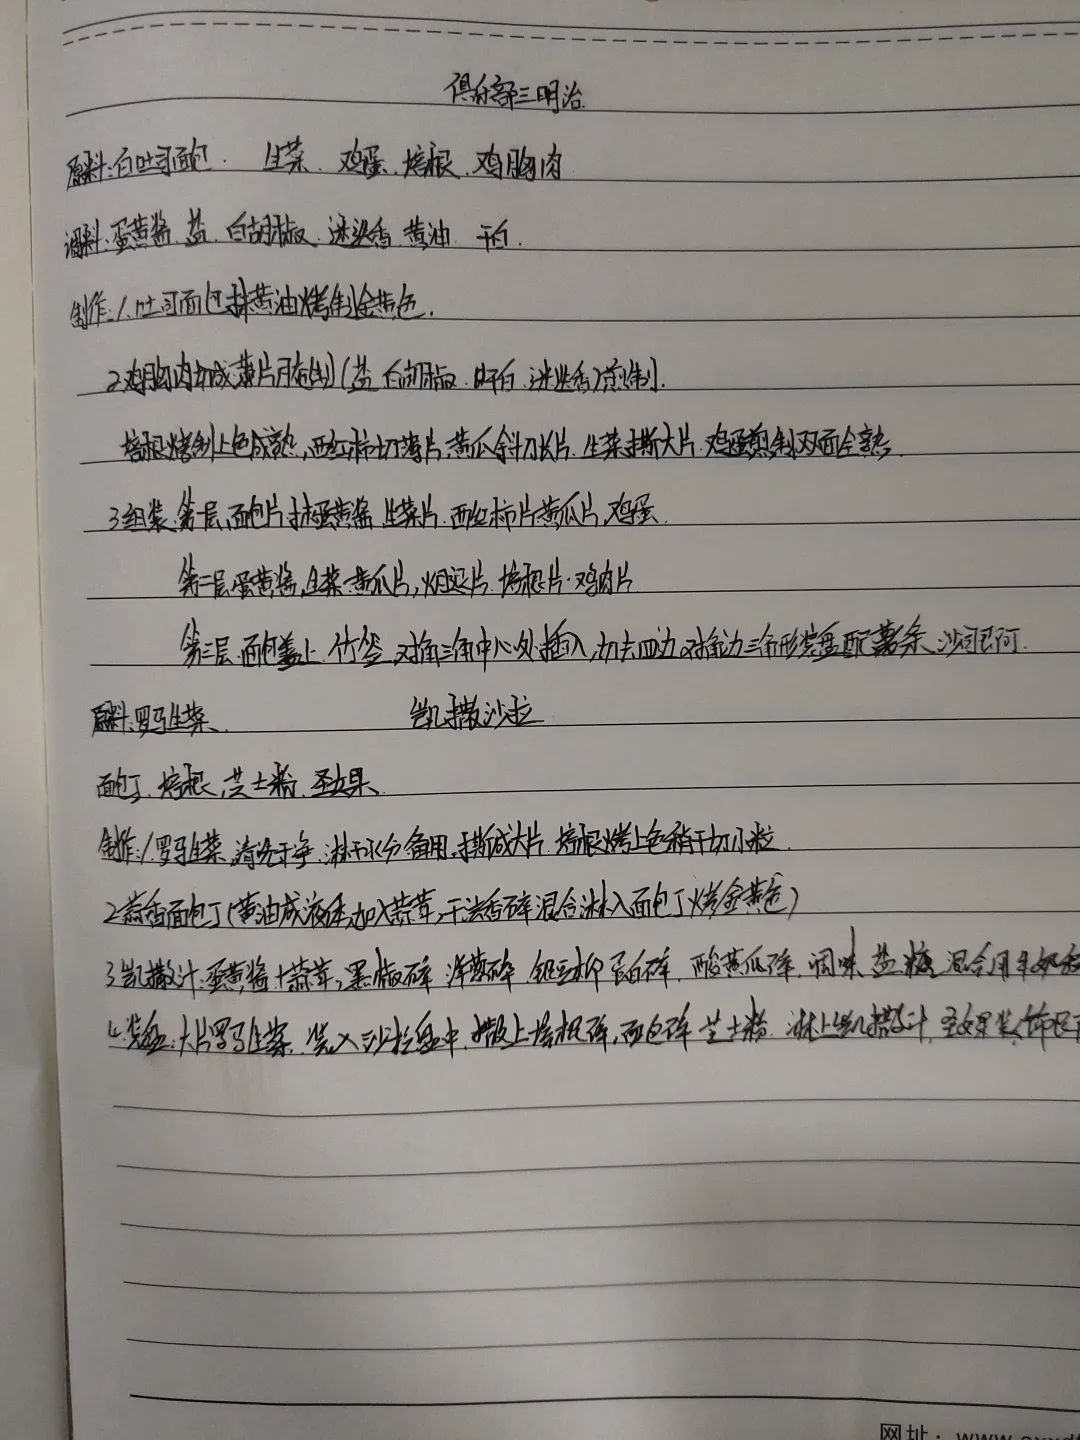 俱乐部三明治
原料:白吐司面包. 生菜. 鸡蛋. 培根. 鸡胸肉
调料:蛋黄酱. 盐. 白胡椒. 迷迭香 黄油 干白.
制作:1.吐司面包抹黄油烤制金黄色.
2鸡胸肉切成薄片腌制(盐 白胡椒 干白 迷迭香)煎制.
培根烤制上色成熟,西红柿切薄片.黄瓜斜刀长片.生菜手撕大片.鸡蛋煎制双面全熟.
3组装.第一层,面包片抹蛋黄酱 生菜片.西红柿片黄瓜片,鸡蛋.
第二层蛋黄酱,生菜.黄瓜片,火腿片.培根片.鸡肉片
第三层 面包盖上.竹签.对角三角中心处插入,切去四边对角切三角形装盘配薯条.沙司
原料:罗马生菜. 凯撒沙拉
面包丁.培根,芝士粉.圣女果.
制作:1.罗马生菜.清洗干净.淋干水分备用,手撕成大片.培根烤上色稍干切小粒.
2蒜香面包丁(黄油成液体,加入蒜茸,干法香碎混合淋入面包丁烤金黄色)
3凯撒汁:蛋黄酱+蒜茸,黑椒碎 洋葱碎.银鱼柳 蛋白碎.酸黄瓜碎.调味 盐 糖 混合用牛奶
4.装盘:大片罗马生菜.装入沙拉盘中,撒上培根碎,面包碎 芝士粉.淋上凯撒汁.圣女果装饰
网址:www.